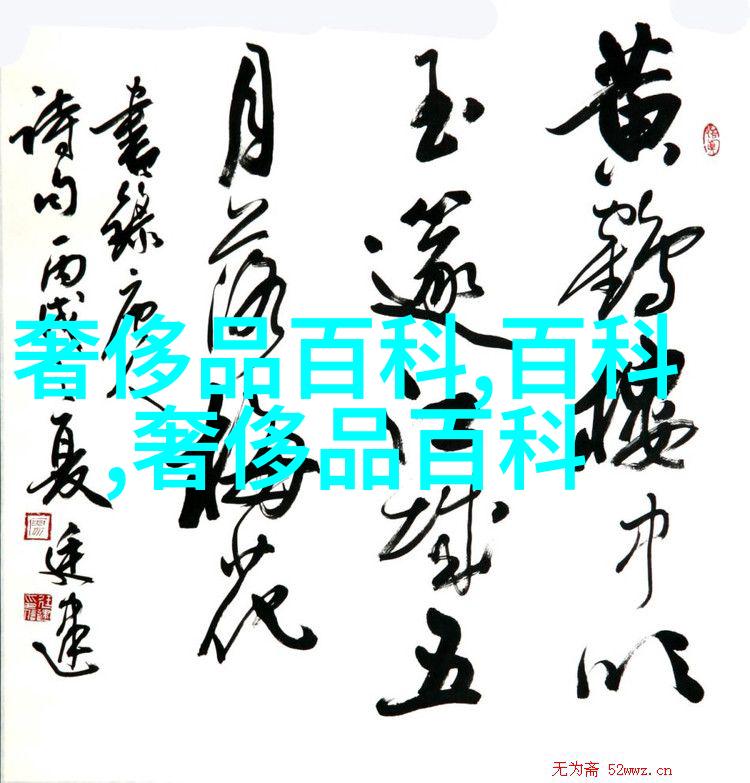 黄鶴樓中吹
玉篴江城五
月落梅花
書錄唐人
詩句丙戌夏廷建
奢侈品百科,百科
,奢侈品百科
无为斋 52wwz.cn